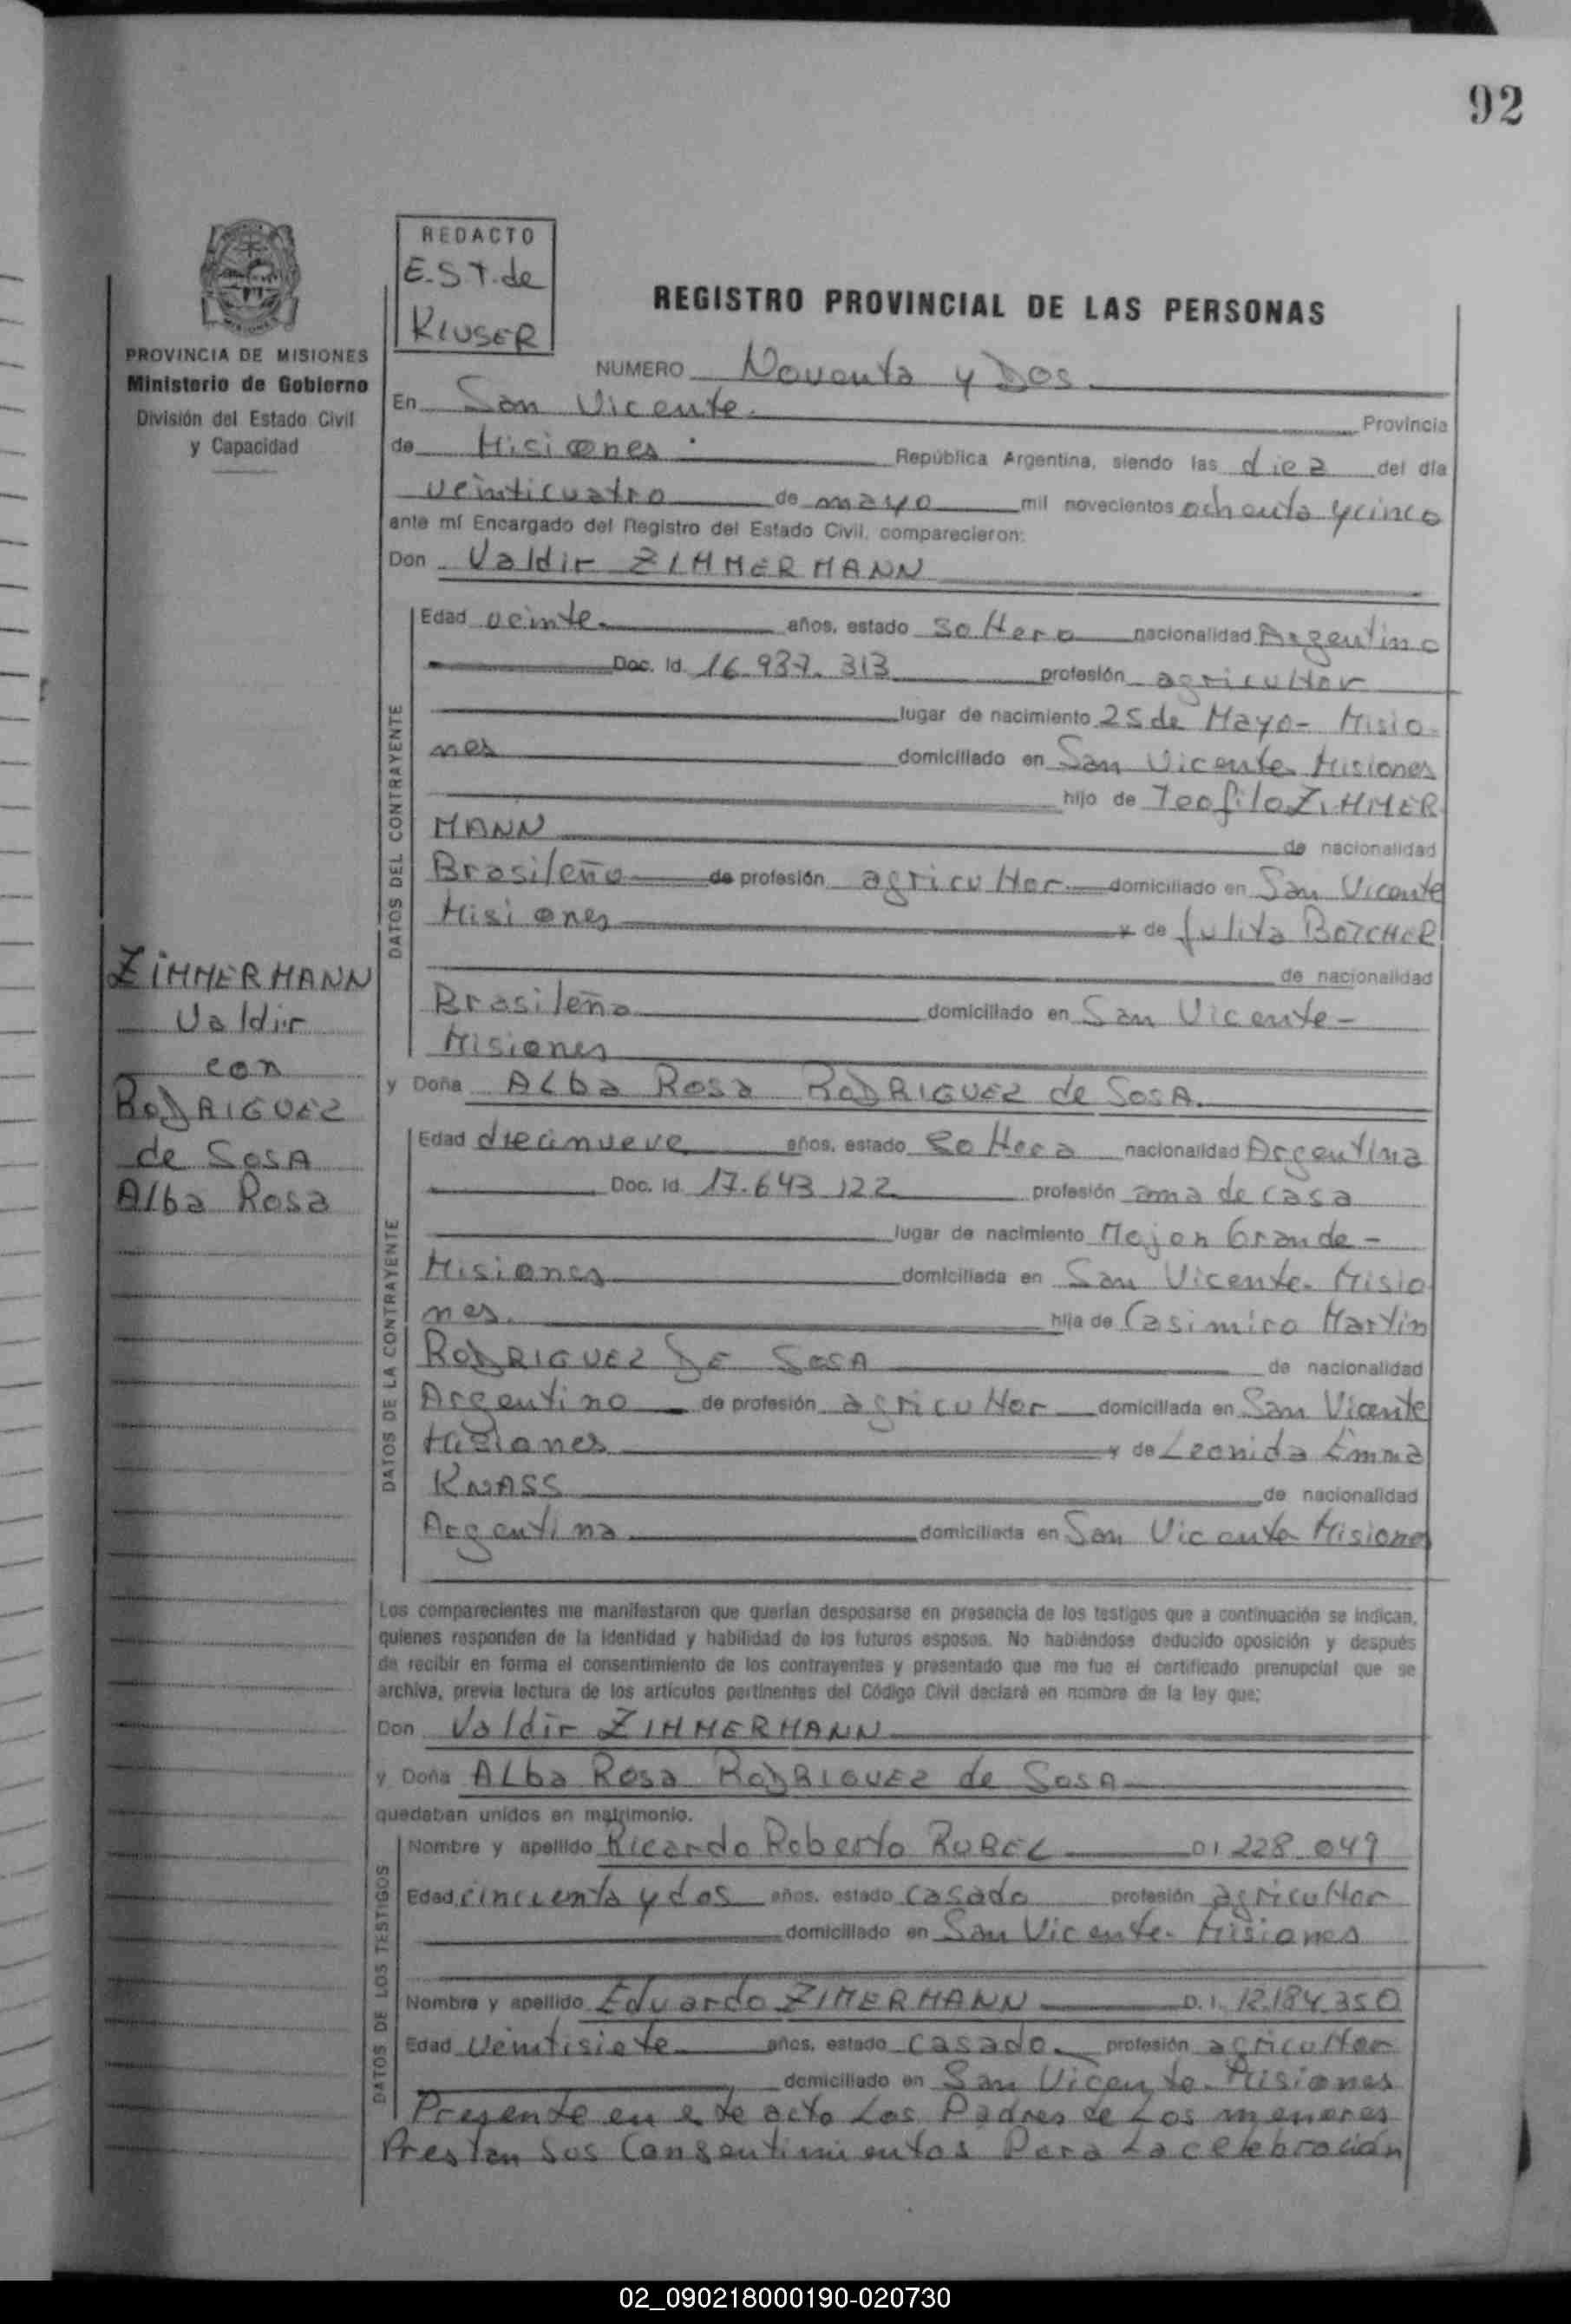 92
REDACTO
E.S.T. de
KLUSER
REGISTRO PROVINCIAL DE LAS PERSONAS
PROVINCIA DE MISIONES
Ministerio de Gobierno
División del Estado Civil
y Capacidad
NUMERO Noventa y Dos
En San Vicente. Provincia
de Misiones República Argentina, siendo las diez del día
veinticuatro de mayo mil novecientos ochenta y cinco
ante mí Encargado del Registro del Estado Civil, comparecieron:
Don Valdir ZIMMERMANN
DATOS DEL CONTRAYENTE
Edad veinte años, estado soltero nacionalidad Argentino
Doc. Id. 16.937.313 profesión agricultor
lugar de nacimiento 25 de Mayo- Misio-
nes domiciliado en San Vicente Misiones
hijo de Teofilo ZIMMER
MANN de nacionalidad
Brasileño de profesión agricultor domiciliado en San Vicente
Misiones y de Julita BOTCHER
de nacionalidad
Brasileña domiciliado en San Vicente-
Misiones
ZIMMERMANN
Valdir
con
RODRIGUEZ
de SOSA
Alba Rosa
y Doña ALba Rosa RODRIGUEZ de SOSA.
DATOS DE LA CONTRAYENTE
Edad diecinueve años, estado soltera nacionalidad Argentina
Doc. Id. 17.643.122 profesión ama de casa
lugar de nacimiento Mojon Grande-
Misiones domiciliada en San Vicente- Misio
nes. hija de Casimiro Martin
RODRIGUEZ DE SOSA de nacionalidad
Argentino de profesión agricultor domiciliada en San Vicente
Misiones y de Leonida Emma
KNASS de nacionalidad
Argentina domiciliada en San Vicente Misiones
Los comparecientes me manifestaron que querían desposarse en presencia de los testigos que a continuación se indican,
quienes responden de la identidad y habilidad de los futuros esposos. No habiéndose deducido oposición y después
de recibir en forma el consentimiento de los contrayentes y presentado que me fue el certificado prenupcial que se
archiva, previa lectura de los artículos pertinentes del Código Civil declaré en nombre de la ley que:
Don Valdir ZIMMERMANN
y Doña ALba Rosa RODRIGUEZ de SOSA
quedaban unidos en matrimonio.
DATOS DE LOS TESTIGOS
Nombre y apellido Ricardo Roberto RUBEL D I 228.049
Edad cincuenta y dos años, estado casado profesión agricultor
domiciliado en San Vicente- Misiones
Nombre y apellido Eduardo ZIMERMANN D. I. 12.184.350
Edad Veintisiete años, estado casado. profesión agricultor
domiciliado en San Vicente- Misiones
Presente en este acto Los Padres de Los menores
Prestan sus Consentimientos Para La celebración
02_090218000190-020730